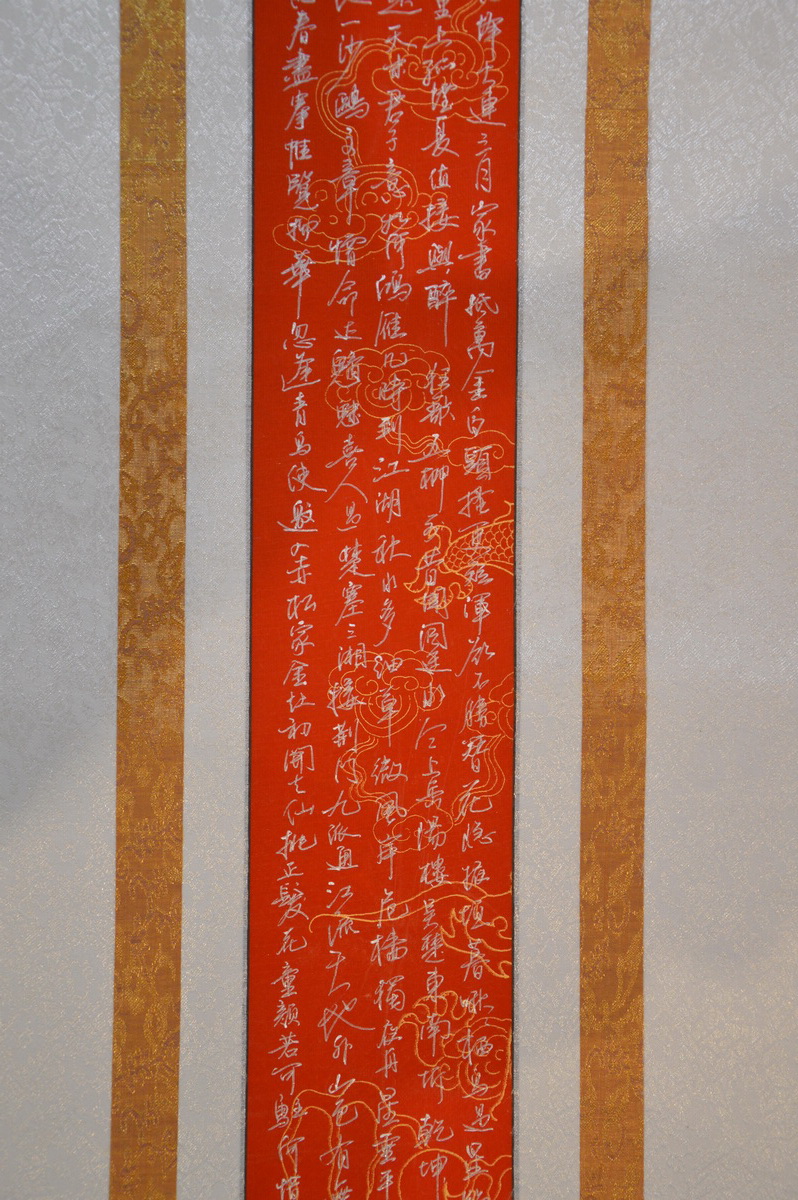 烽火連三月家書抵萬金白頭搔更短渾欲不勝簪花隱掖垣暮啾棲鳥過星臨
里上孤煙復值接輿醉狂歌五柳前昔聞洞庭水今上岳陽樓吳楚東南坼乾坤
天末君子意如何鴻雁几時到江湖秋水多細草微風岸危檣獨夜舟星垂平
一沙鷗文章憎命达魑魅喜人過楚塞三湘接荊门九派通江流天地外山色有無
春盡搴帷覽物華忽逢青鳥使邀入赤松家金灶初開火仙桃正發花童顏若可駐何惜